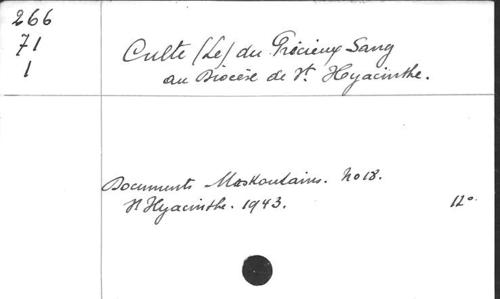 266
71
1
Culte (Le) du Précieux Sang
au Diocèse de St. Hyacinthe.
Documents Maskoutains. No 18.
St Hyacinthe. 1943. 12°